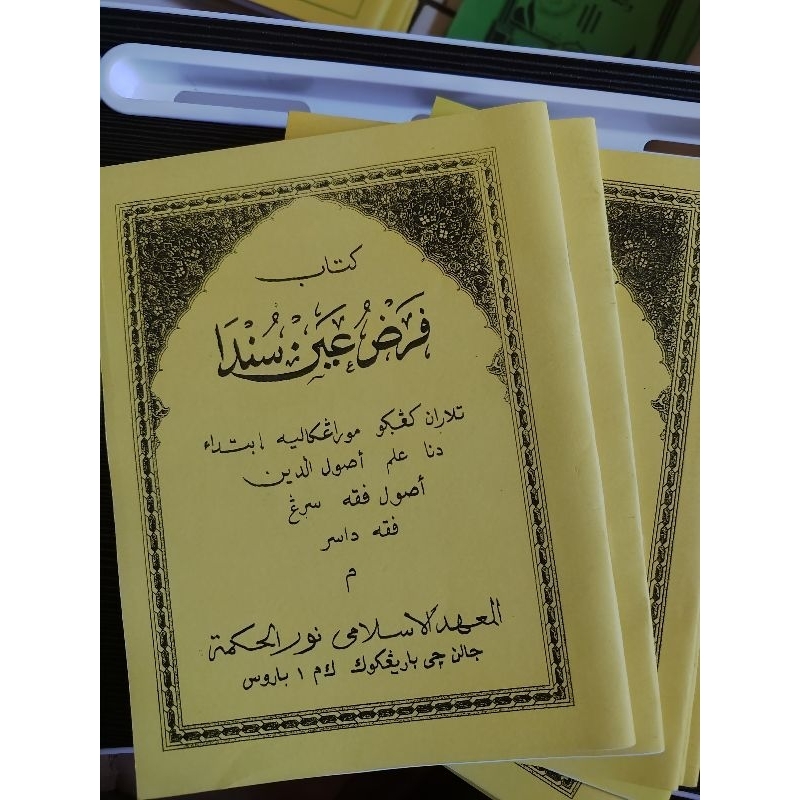 كتاب
فَرَضُ عَيَنْ سُنْدَا
تلاران كڠڮو موراڠكاليه إبتداء
دنا علم أصول الدين
أصول فقه سرڠ
فقه داسر
م
المعهد الاسلامى نور الحكمة
جالن چى باريڠكوك ك م ١ باروس